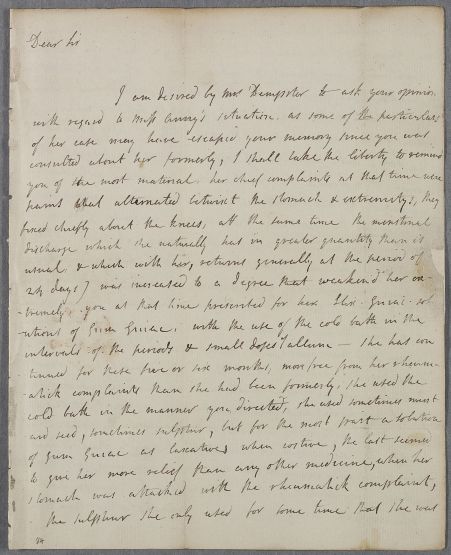 Dear Sir
I am desired by Mrs Dempster to ask your opinion
with regard to Miss Anny's situation. as some of the particulars
of her case may have escaped your memory since you was
consulted about her formerly, I shall take the liberty to remind
you of the most material. her chief complaints at that time were
pains that alternated betwixt the stomach & extremitys, they
fixed chiefly about the knees, att the same time the menstrual
discharge which she naturally has in greater quantity than is
usual, & which with her, returns generally at the period of
days) was increased to a degree that weakend her ex-
tremely. you at that time prescribed for her Elix. Guaiac.
of Gum Guiac: with the use of the cold bath in the
intervals of the periods & small doses allum — she has con
tinued for these five or six months, more free from her rheum-
atick complaints than she had been formerly, she used the
cold bath in the manner you directed, she used sometimes must
ard seed, sometimes sulphur, but for the most part a solution
of Gum Guiac as laxatives when costive, the last seemed
to give her more relief than any other medicine, when her
stomach was attacked with the rheumatick complaint,
the sulphur she only used for some time that she was